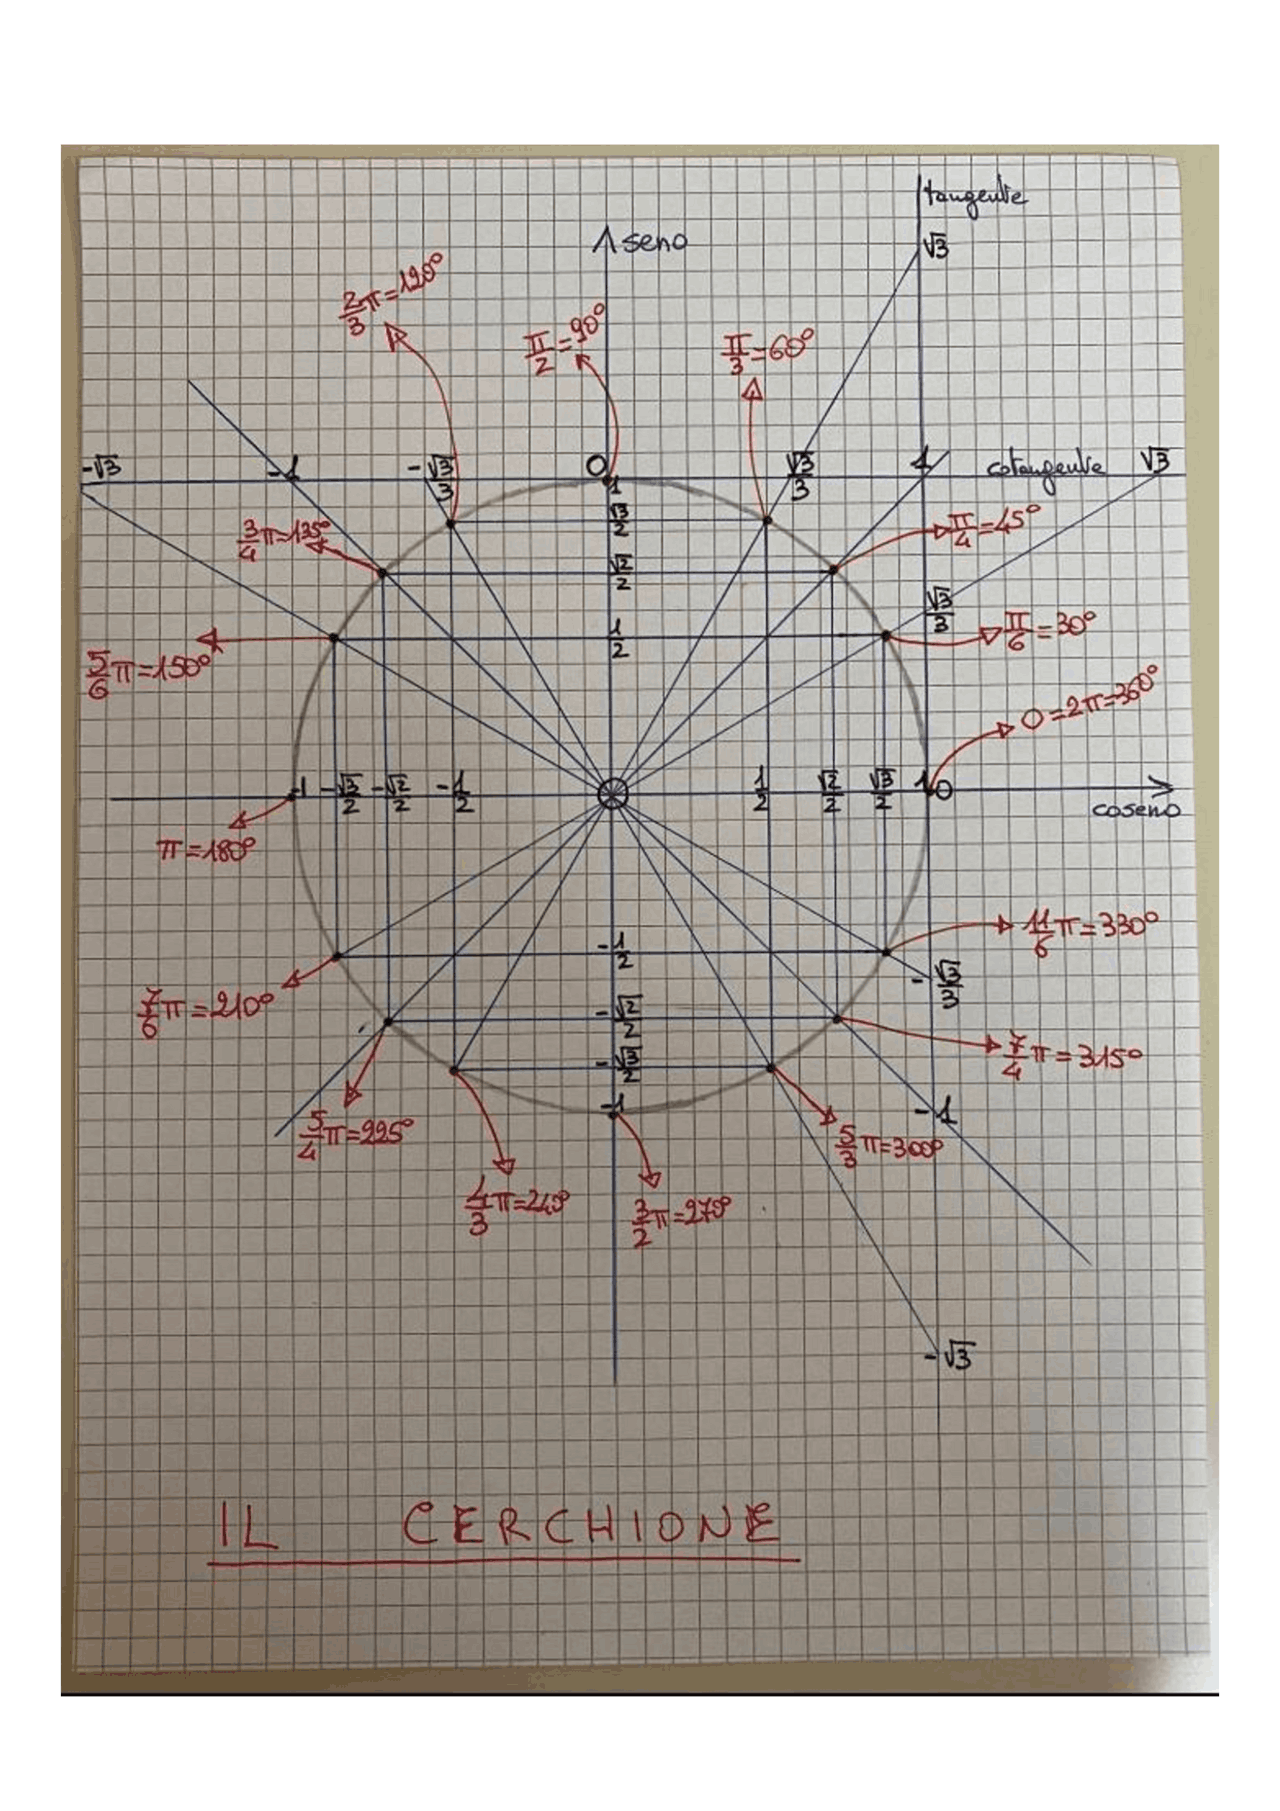 tangente
√3
seno
2/3 π=120°
π/2=90°
π/3=60°
-√3
-1
-√3/3
0
√3/3
1
cotangente
√3
1
√3/2
3/4 π=135°
π/4=45°
√2/2
√3/3
1/2
π/6=30°
5/6 π=150°
0=2π=360°
-1
-√3/2
-√2/2
-1/2
1/2
√2/2
√3/2
1
0
coseno
π=180°
11/6 π=330°
-1/2
-√3/3
7/6 π=210°
-√2/2
7/4 π=315°
-√3/2
-1
-1
5/4 π=225°
5/3 π=300°
4/3 π=240°
3/2 π=270°
-√3
IL CERCHIONE